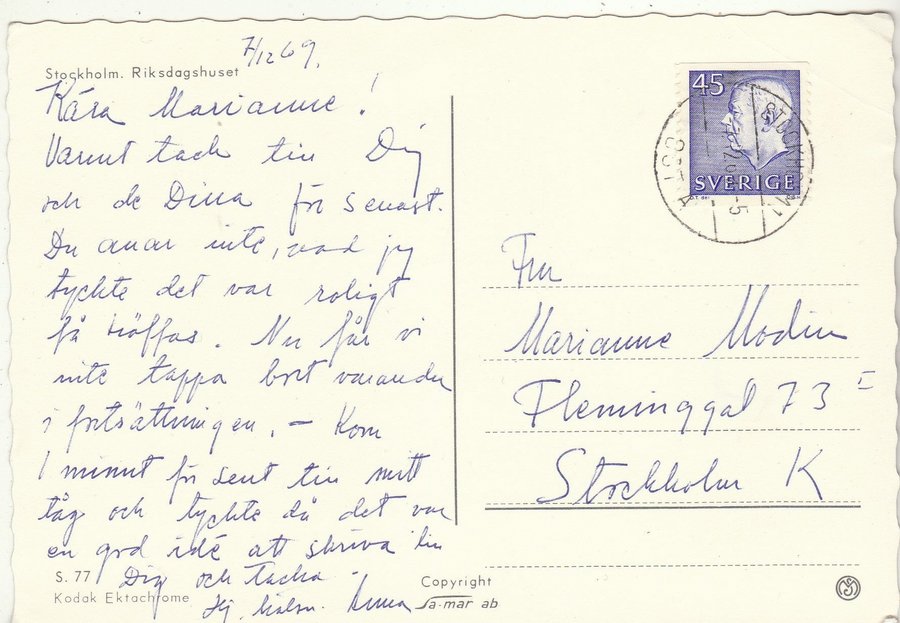 7/12 69.
Stockholm. Riksdagshuset
Kära Marianne!
Varmt tack till Dig
och de Dina för senast.
Du anar inte, vad jag
tyckte det var roligt
få träffas. Nu får vi
inte tappa bort varandra
i fortsättningen. – Kom
1 minut för sent till mitt
tåg och tyckte då det var
en god idé att skriva till
Dig och tacka.
Hj. hälsn. Anna
S. 77
Kodak Ektachrome
Copyright
Sa-mar ab
45
SVERIGE
STOCKHOLM 1
Fru
Marianne Modin
Fleminggat 73 I
Stockholm K